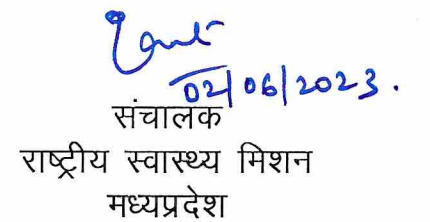 02/06/2023.
संचालक
राष्ट्रीय स्वास्थ्य मिशन
मध्यप्रदेश